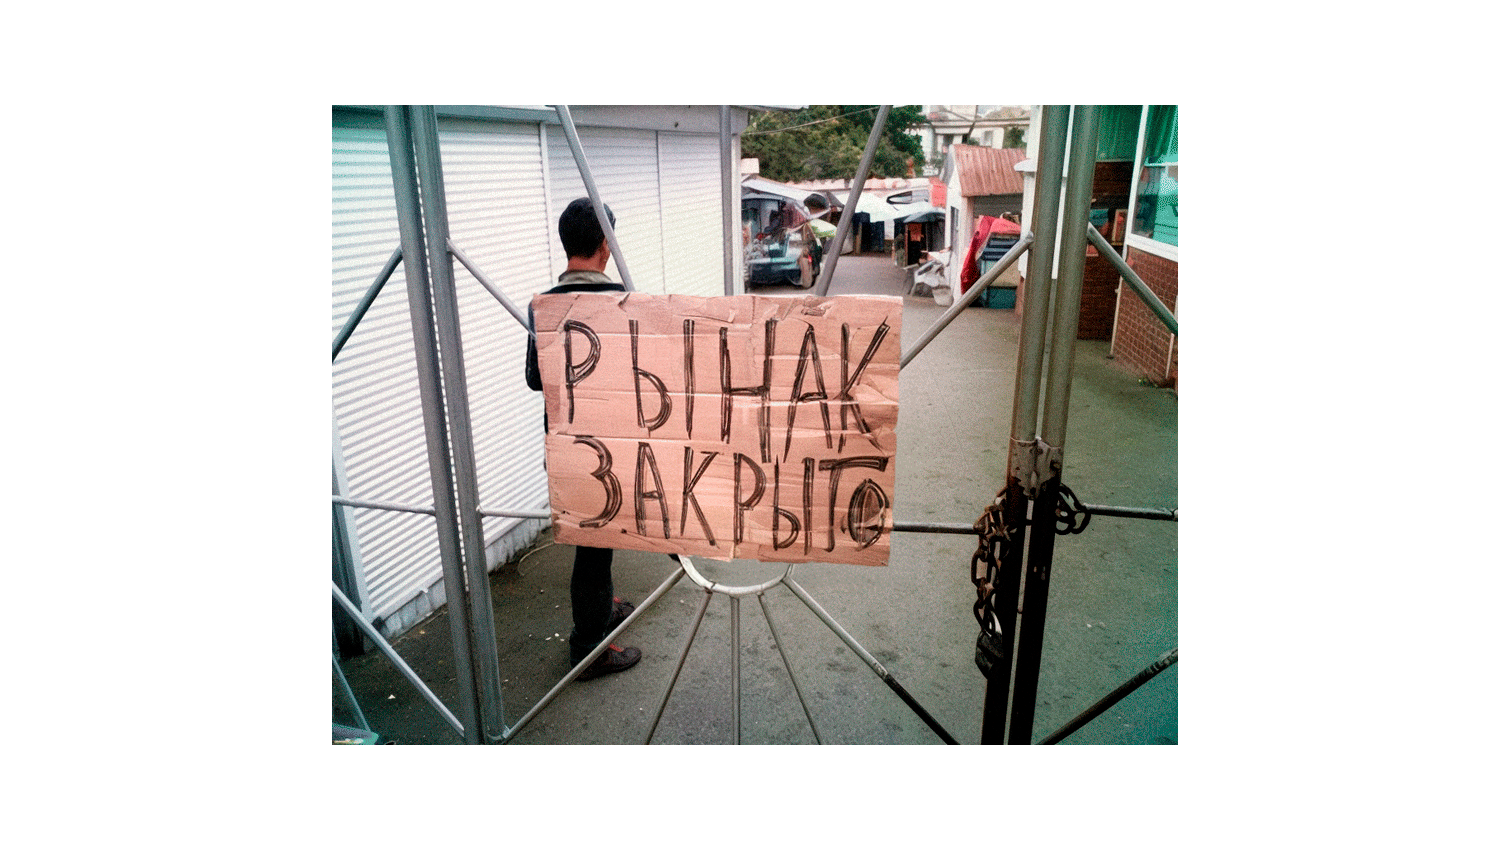 РЫНАК
ЗАКРЫТО